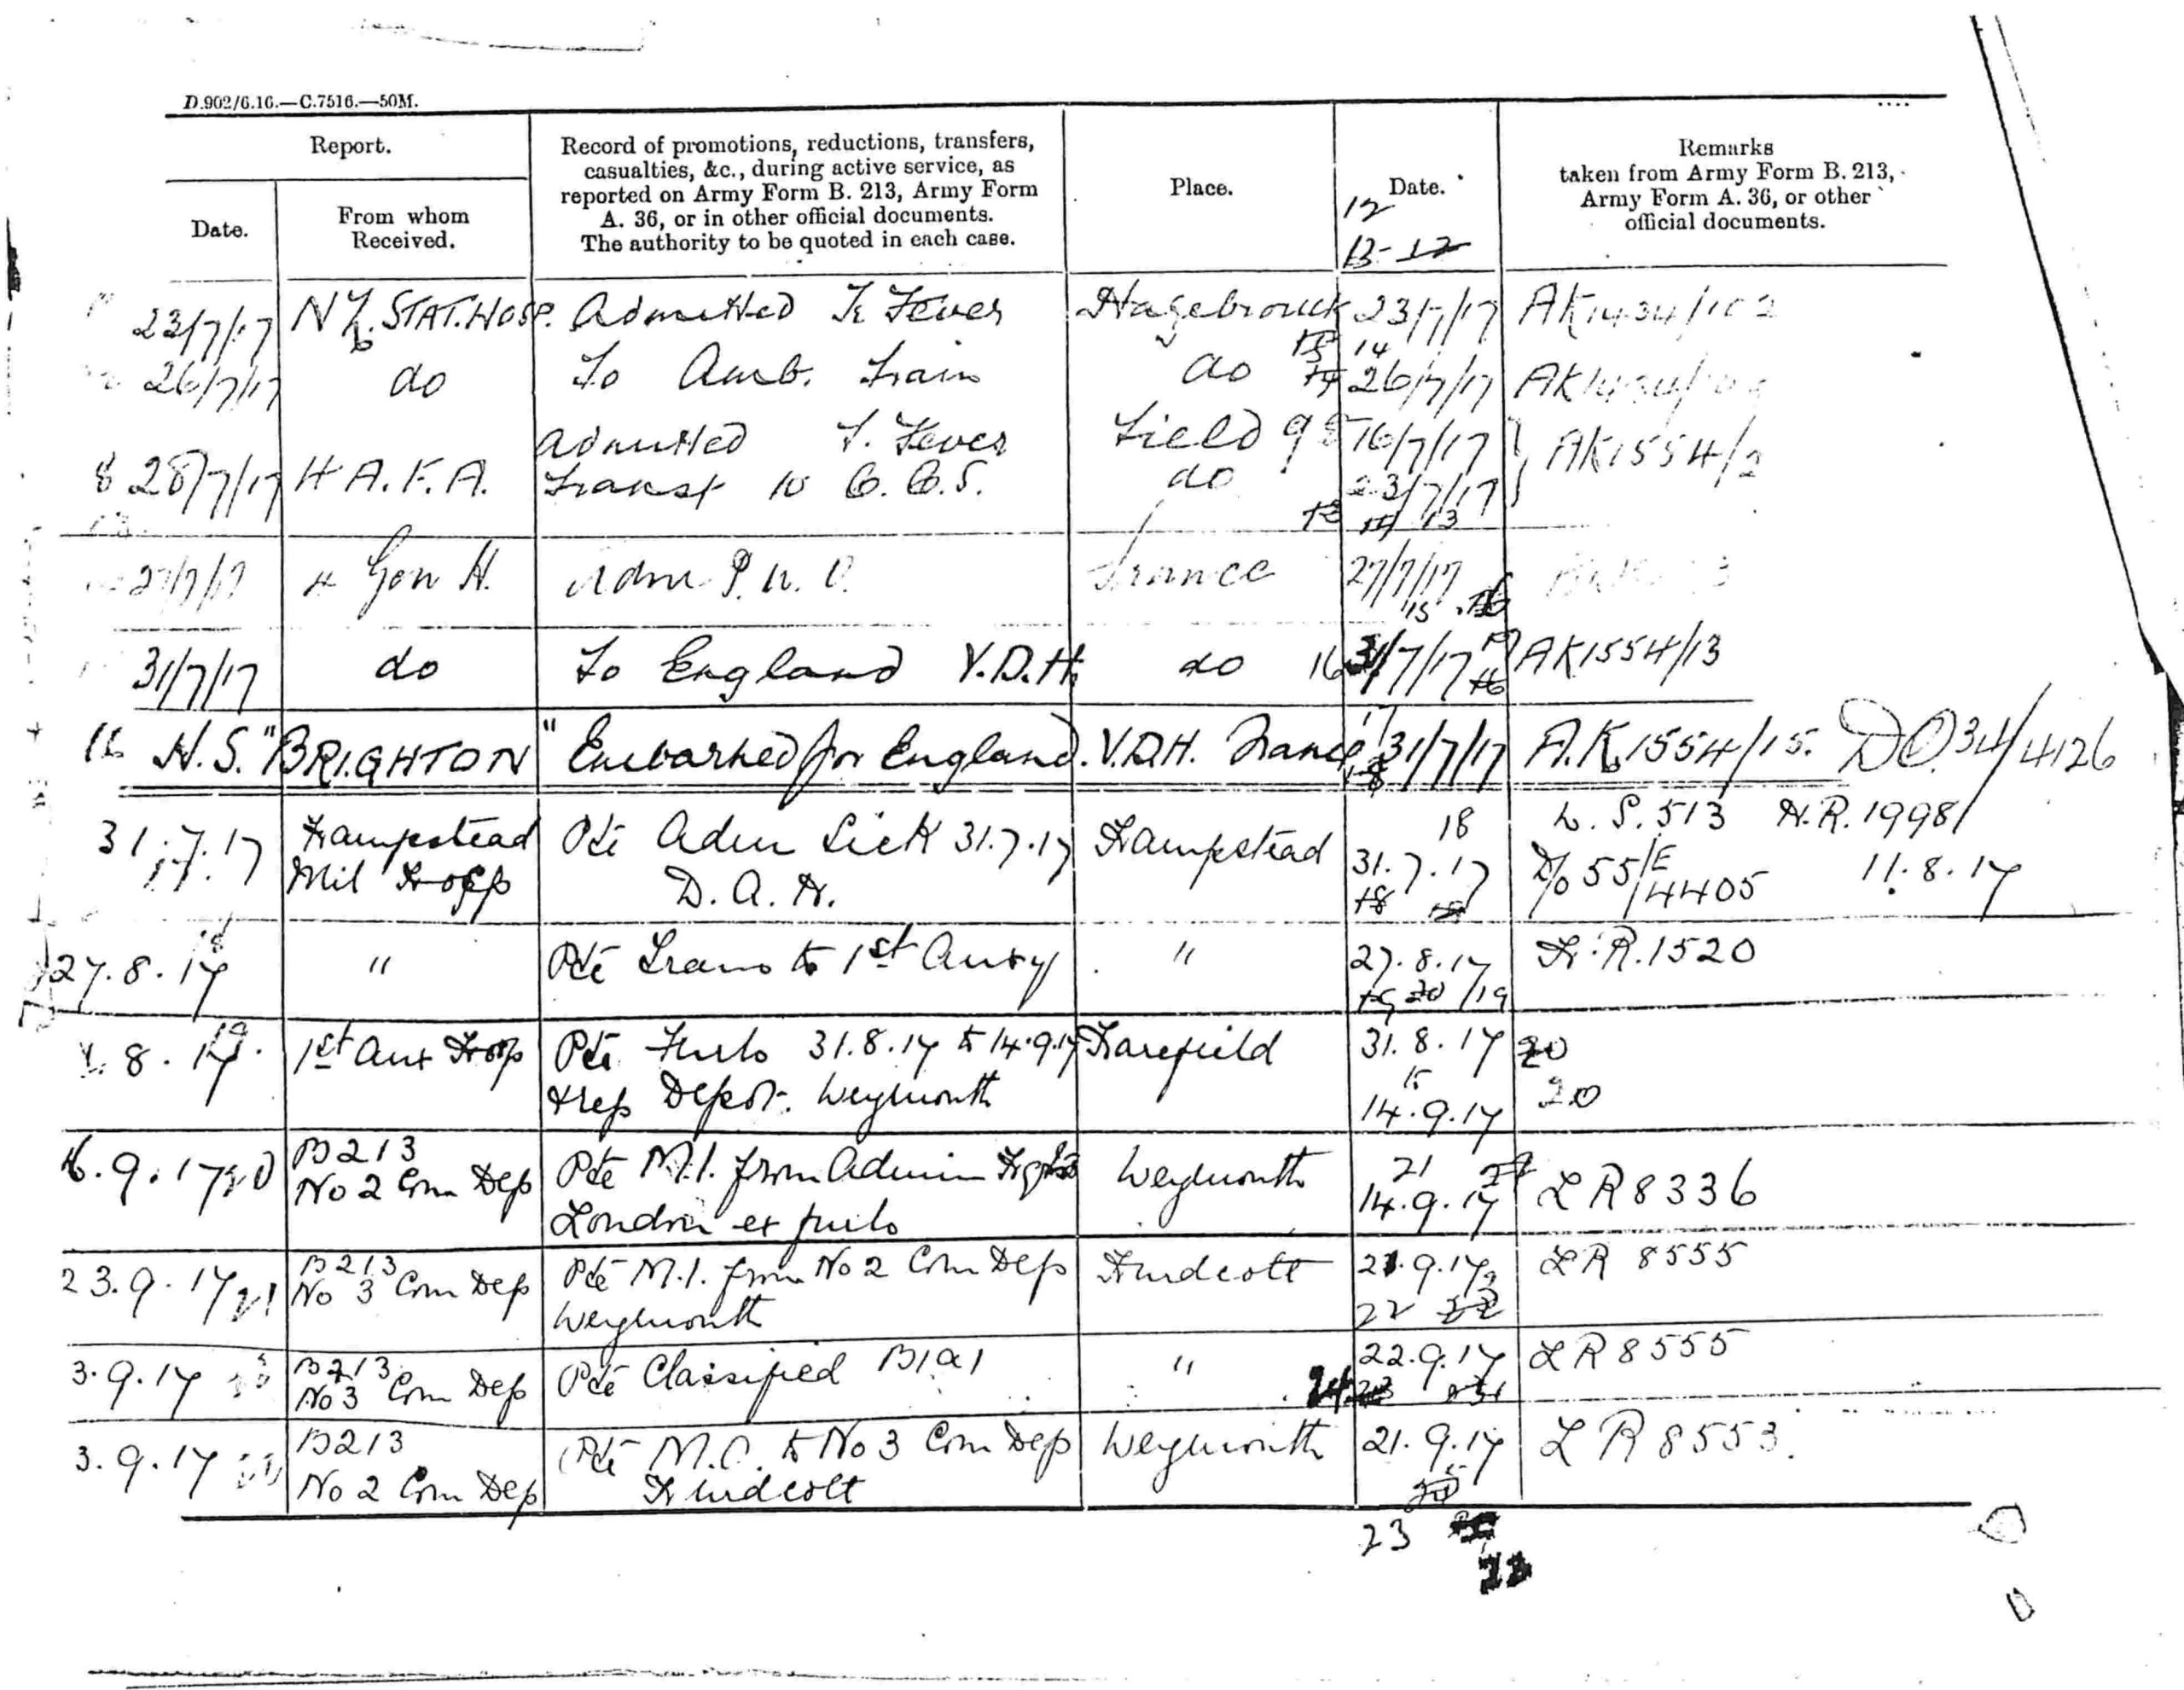 D.902/6.16.—C.7516.—50M.
Report.
Date.
From whom
Received.
Record of promotions, reductions, transfers,
casualties, &c., during active service, as
reported on Army Form B. 213, Army Form
A. 36, or in other official documents.
The authority to be quoted in each case.
Place.
Date.
12
Remarks
taken from Army Form B. 213,
Army Form A. 36, or other
official documents.
23/7/17 NZ. STAT. HOSP. Admitted Tr Fever Hazebrouck 23/7/17 AK1434/102
14
26/7/17 do To Amb. Train do 26/7/17
Admitted T. Fever Field 16/7/17
8 28/7/17 4 A.F.A. Transf to C.C.S. do 23/7/17 AK1554/2
13
27/7/17 4 Gen H. Adm P.U.O. France 27/7/17
15
31/7/17 do To England V.D.H. do 16 31/7/17 AK1554/13
16 H.S. "BRIGHTON" Embarked for England. V.D.H. France 17 31/7/17 A.K.1554/15. DO.34/4126
31.7.17 Hampstead Pte Adm Sick 31.7.17 Hampstead 18 L.S.513 H.R.1998/
17.
Mil Hosp D.A.H. 31.7.17 D/o 55/E/4405 11.8.17
27.8.17 " Pte Trans to 1st Auxy " 27.8.17 H.R.1520
18
19
19.
.8.17 1st Aux Hosp Pte Furlo 31.8.17 to 14.9.17 Harefield 31.8.17
to
& rep Depot. Weymouth 14.9.17 20
6.9.17 20 B213 Pte M.I. from Admin Hqrs Weymouth 21
No 2 Com Dep London ex furlo 14.9.17 LR8336
23.9.17 21 B213 Pte M.I. from No 2 Com Dep Hurdcott 21.9.17 LR 8555
No 3 Com Dep Weymouth 22
3.9.17 B213 Pte Classified B1a1 " 22.9.17 LR8555
No 3 Com Dep 24
3.9.17 B213 Pte M.O. to No 3 Com Dep Weymouth 21.9.17 LR8553.
No 2 Com Dep Hurdcott
23
23